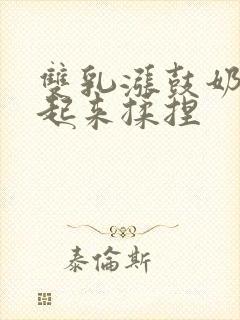 雙乳漲鼓奶
起来揉捏
泰倫斯